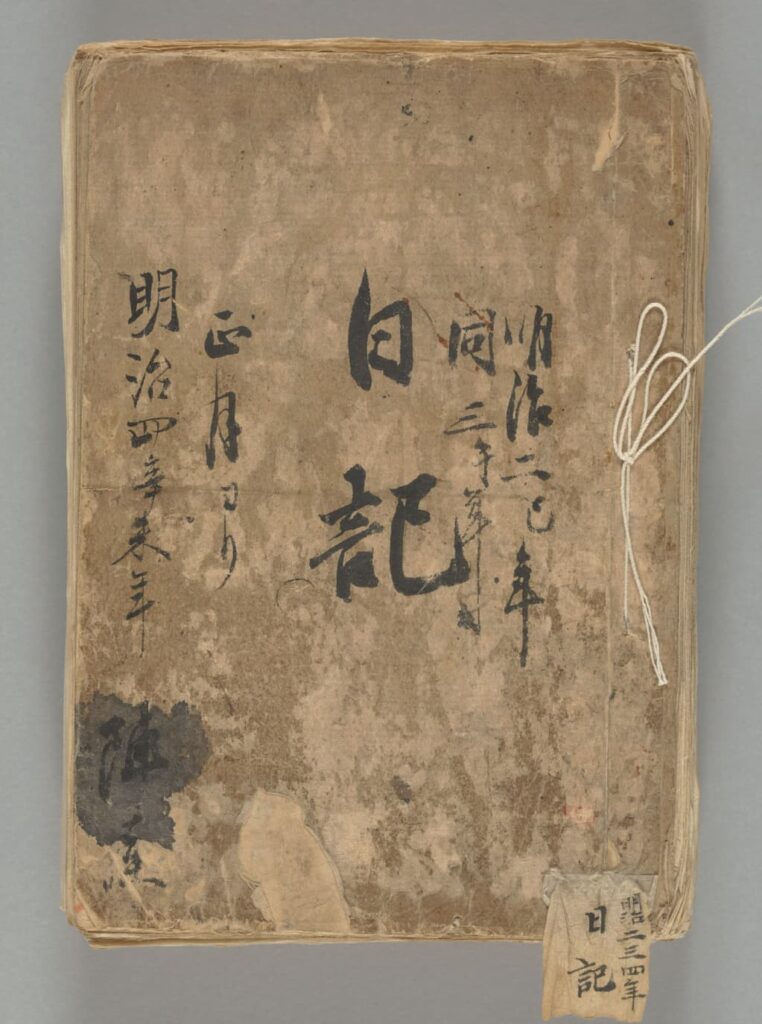 明治二巳年
同三午年
日記
正月ヨリ
明治四辛未年
陣
明治二三四年
日記